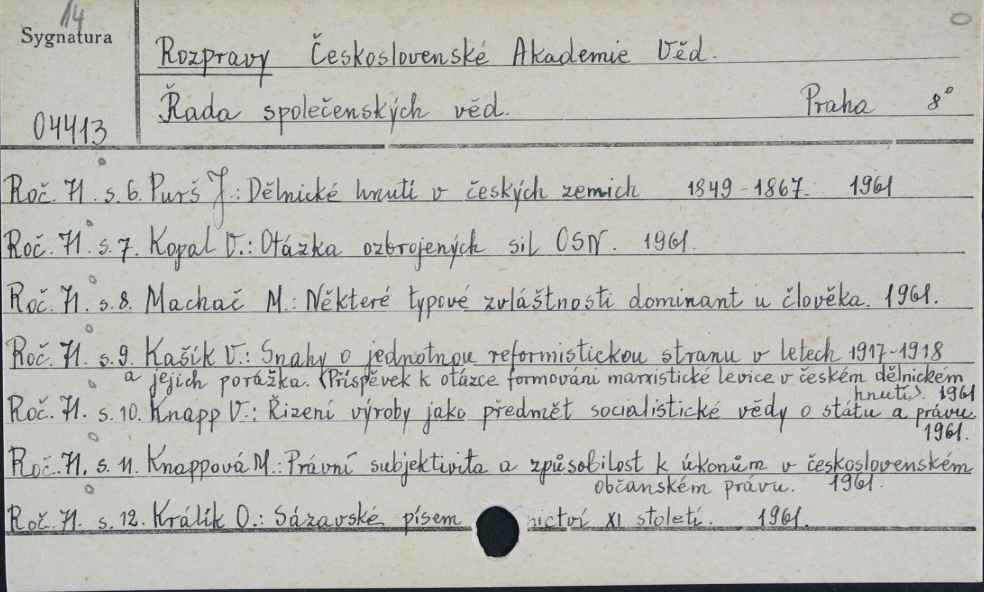 14
Sygnatura
04413
Rozpravy Československé Akademie Věd.
Řada společenských věd. Praha 8°
Roč. 71. s. 6. Purš J.: Dělnické hnutí v českých zemích 1849-1867. 1961
Roč. 71. s. 7. Kopal V.: Otázka ozbrojených sil OSN. 1961.
Roč. 71. s. 8. Machač M.: Některé typové zvláštnosti dominant u člověka. 1961.
Roč. 71. s. 9. Kašík V.: Snahy o jednotnou reformistickou stranu v letech 1917-1918
a jejich porážka. (Příspěvek k otázce formování marxistické levice v českém dělnickém
hnutí). 1961
Roč. 71. s. 10. Knapp V.: Řízení výroby jako předmět socialistické vědy o státu a právu.
1961.
Roč. 71. s. 11. Knappová M.: Právní subjektivita a způsobilost k úkonům v československém
občanském právu. 1961.
Roč. 71. s. 12. Králík O.: Sázavské písem nictví XI století. 1961.